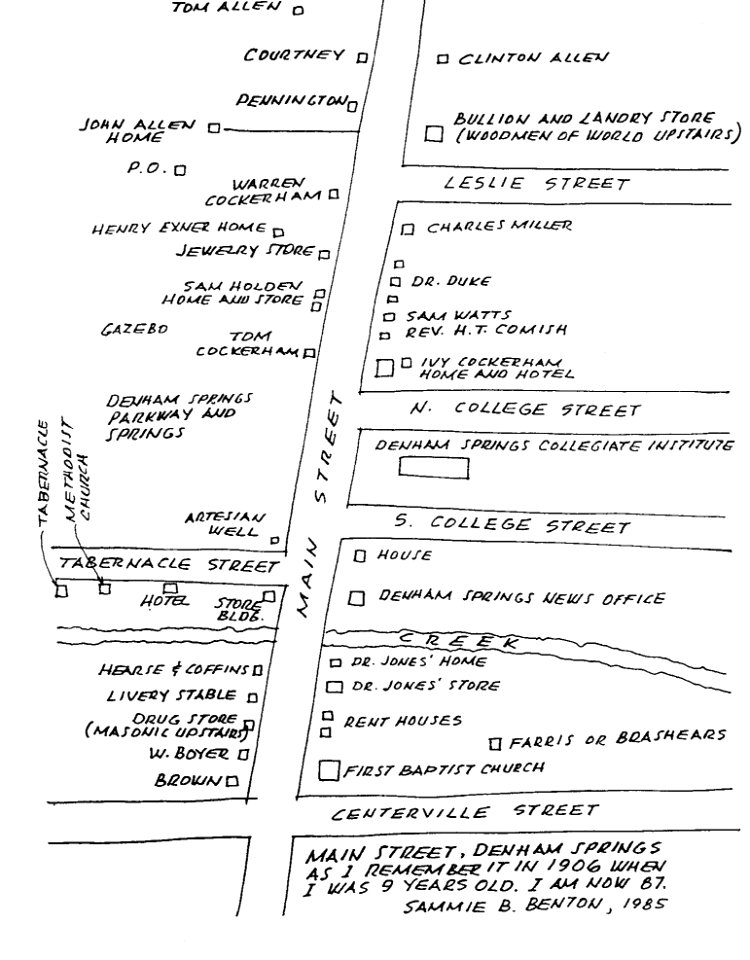 TOM ALLEN
COURTNEY
CLINTON ALLEN
PENNINGTON
JOHN ALLEN
HOME
BULLION AND LANDRY STORE
(WOODMEN OF WORLD UPSTAIRS)
P.O.
LESLIE STREET
WARREN
COCKERHAM
HENRY EXNER HOME
CHARLES MILLER
JEWELRY STORE
SAM HOLDEN
HOME AND STORE
DR. DUKE
GAZEBO
TOM
COCKERHAM
SAM WATTS
REV. H.T. COMISH
IVY COCKERHAM
HOME AND HOTEL
DENHAM SPRINGS
PARKWAY AND
SPRINGS
N. COLLEGE STREET
MAIN STREET
DENHAM SPRINGS COLLEGIATE INSTITUTE
TABERNACLE
METHODIST
CHURCH
ARTESIAN
WELL
S. COLLEGE STREET
TABERNACLE STREET
HOUSE
HOTEL
STORE
BLDG.
DENHAM SPRINGS NEWS OFFICE
CREEK
HEARSE & COFFINS
DR. JONES' HOME
LIVERY STABLE
DR. JONES' STORE
DRUG STORE
(MASONIC UPSTAIRS)
RENT HOUSES
W. BOYER
FARRIS OR BRASHEARS
BROWN
FIRST BAPTIST CHURCH
CENTERVILLE STREET
MAIN STREET, DENHAM SPRINGS
AS I REMEMBER IT IN 1906 WHEN
I WAS 9 YEARS OLD. I AM NOW 87.
SAMMIE B. BENTON, 1985